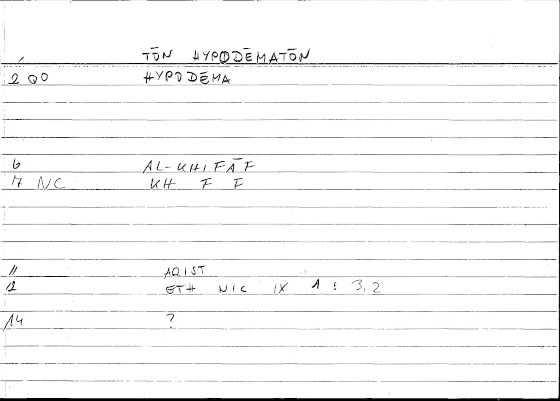 1 TŌN HYPODĒMATŌN
2 QO HYPODĒMA
6 AL-KHIFĀF
7 NC KH F F
11 ARIST
12 ETH NIC IX 1 : 3,2
14 ?